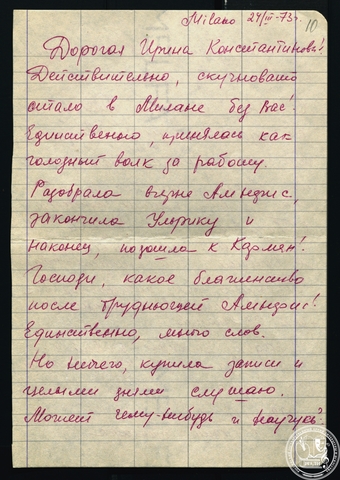 Milano 24/III-73г.
10
Дорогая Ирина Константиновна!
Действительно, скучновато
стало в Милане без Вас!
Единственно, принялась как
голодный волк за работу.
Разобрала вчерне Амнерис,
закончила Ульрику и
наконец, подошла к Кармен!
Господи, какое блаженство
после труднющей Амнерис!
Единственно, много слов.
Но ничего, купила записи и
целыми днями слушаю.
Может чему-нибудь и научусь